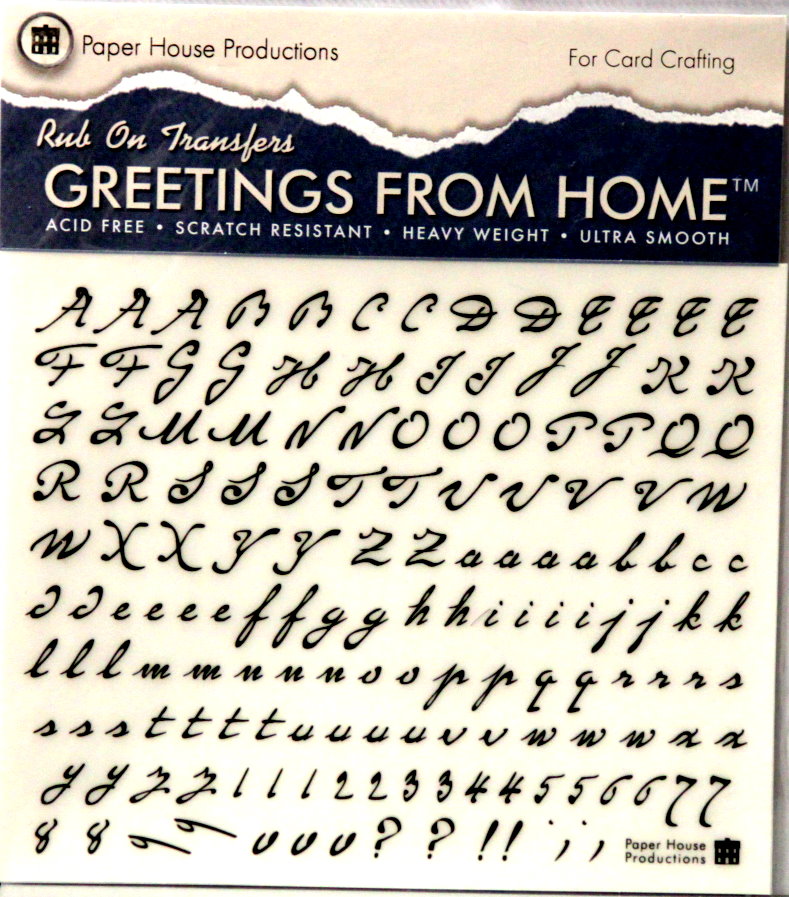 Paper House Productions
For Card Crafting
Rub On Transfers
GREETINGS FROM HOME™
ACID FREE • SCRATCH RESISTANT • HEAVY WEIGHT • ULTRA SMOOTH
A A A B B C C D D E E E E
F F G G H H I I J J K K
L L M M N N O O O P P Q Q
R R S S S T T U U V V W
W X X Y Y Z Z a a a a b b c c
d d e e e e f f g g h h i i i i j j k k
l l l m m n n n o o p p q q r r r s
s s s t t t t u u u u v v w w w x x
y y z z 1 1 1 2 2 3 3 4 4 5 5 6 6 7 7
8 8 9 9 0 0 0 ? ? ! !
Paper House
Productions